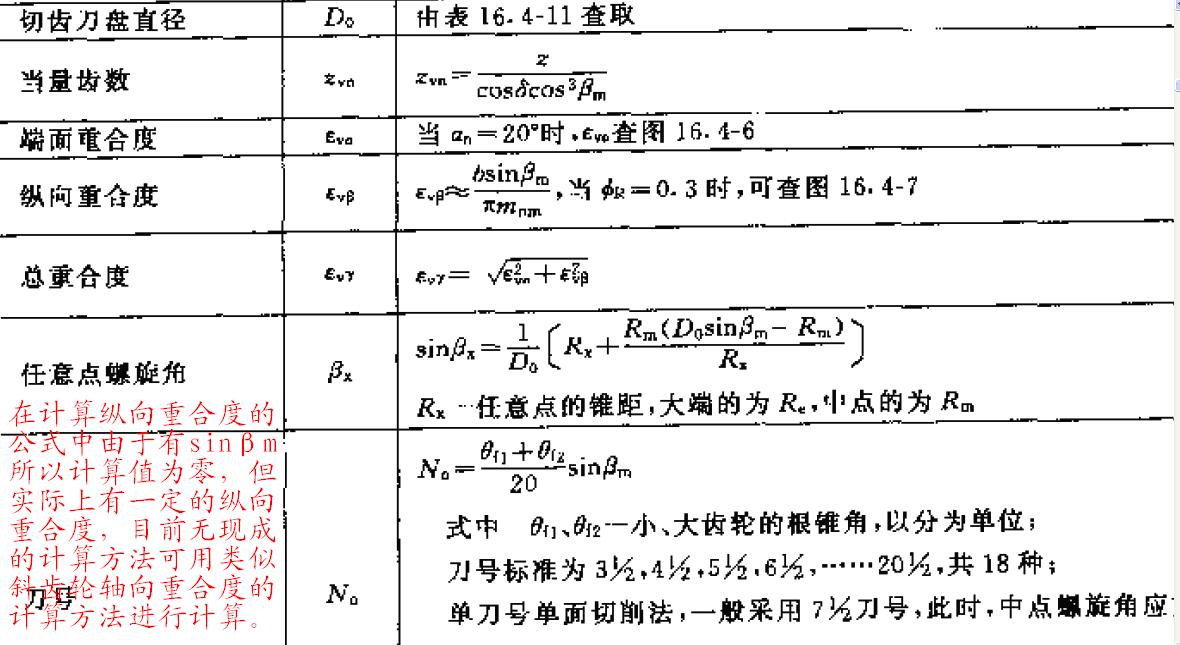 切齿刀盘直径 D₀ 由表 16.4-11 查取
当量齿数 zᵥₙ zᵥₙ=z/(cosδcos³βₘ)
端面重合度 εᵥα 当 αₙ=20°时,εᵥα查图 16.4-6
纵向重合度 εᵥᵦ εᵥᵦ≈bsinβₘ/(πmₙₘ),当 ϕR=0.3 时,可查图 16.4-7
总重合度 εᵥγ εᵥγ= √(ε²ᵥα+ε²ᵥᵦ)
任意点螺旋角 βₓ sinβₓ=1/D₀(Rₓ+Rₘ(D₀sinβₘ-Rₘ)/Rₓ)
Rₓ—任意点的锥距,大端的为 Rₑ,中点的为 Rₘ
在计算纵向重合度的
公式中由于有sinβm
所以计算值为零，但
实际上有一定的纵向
重合度，目前无现成
的计算方法可用类似
斜齿轮轴向重合度的
计算方法进行计算。
刀号 N₀ N₀=(θf1+θf2)/20 sinβₘ
式中 θf1、θf2—小、大齿轮的根锥角,以分为单位;
刀号标准为 3½,4½,5½,6½,……20½,共 18 种;
单刀号单面切削法,一般采用 7½刀号,此时,中点螺旋角应